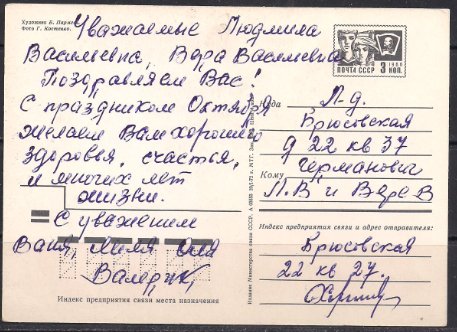 Художник Б. Пармеев
Фото Г. Костенко.
Уважаемые Людмила
Васильевна, Вера Васильевна
Поздравляем Вас!
С праздником Октября
Желаем Вам хорошего
здоровья, счастья,
и многих лет
жизни.
С уважением
Ваня, Лиля Оля
Валерик,
Индекс предприятия связи места назначения
1966
ПОЧТА СССР 3 КОП.
Куда Л-д.
Брюсовская
д 22 кв 37
Кому Германович
Л.В и Вере В
Индекс предприятия связи и адрес отправителя:
Брюсовская
22 кв 27.